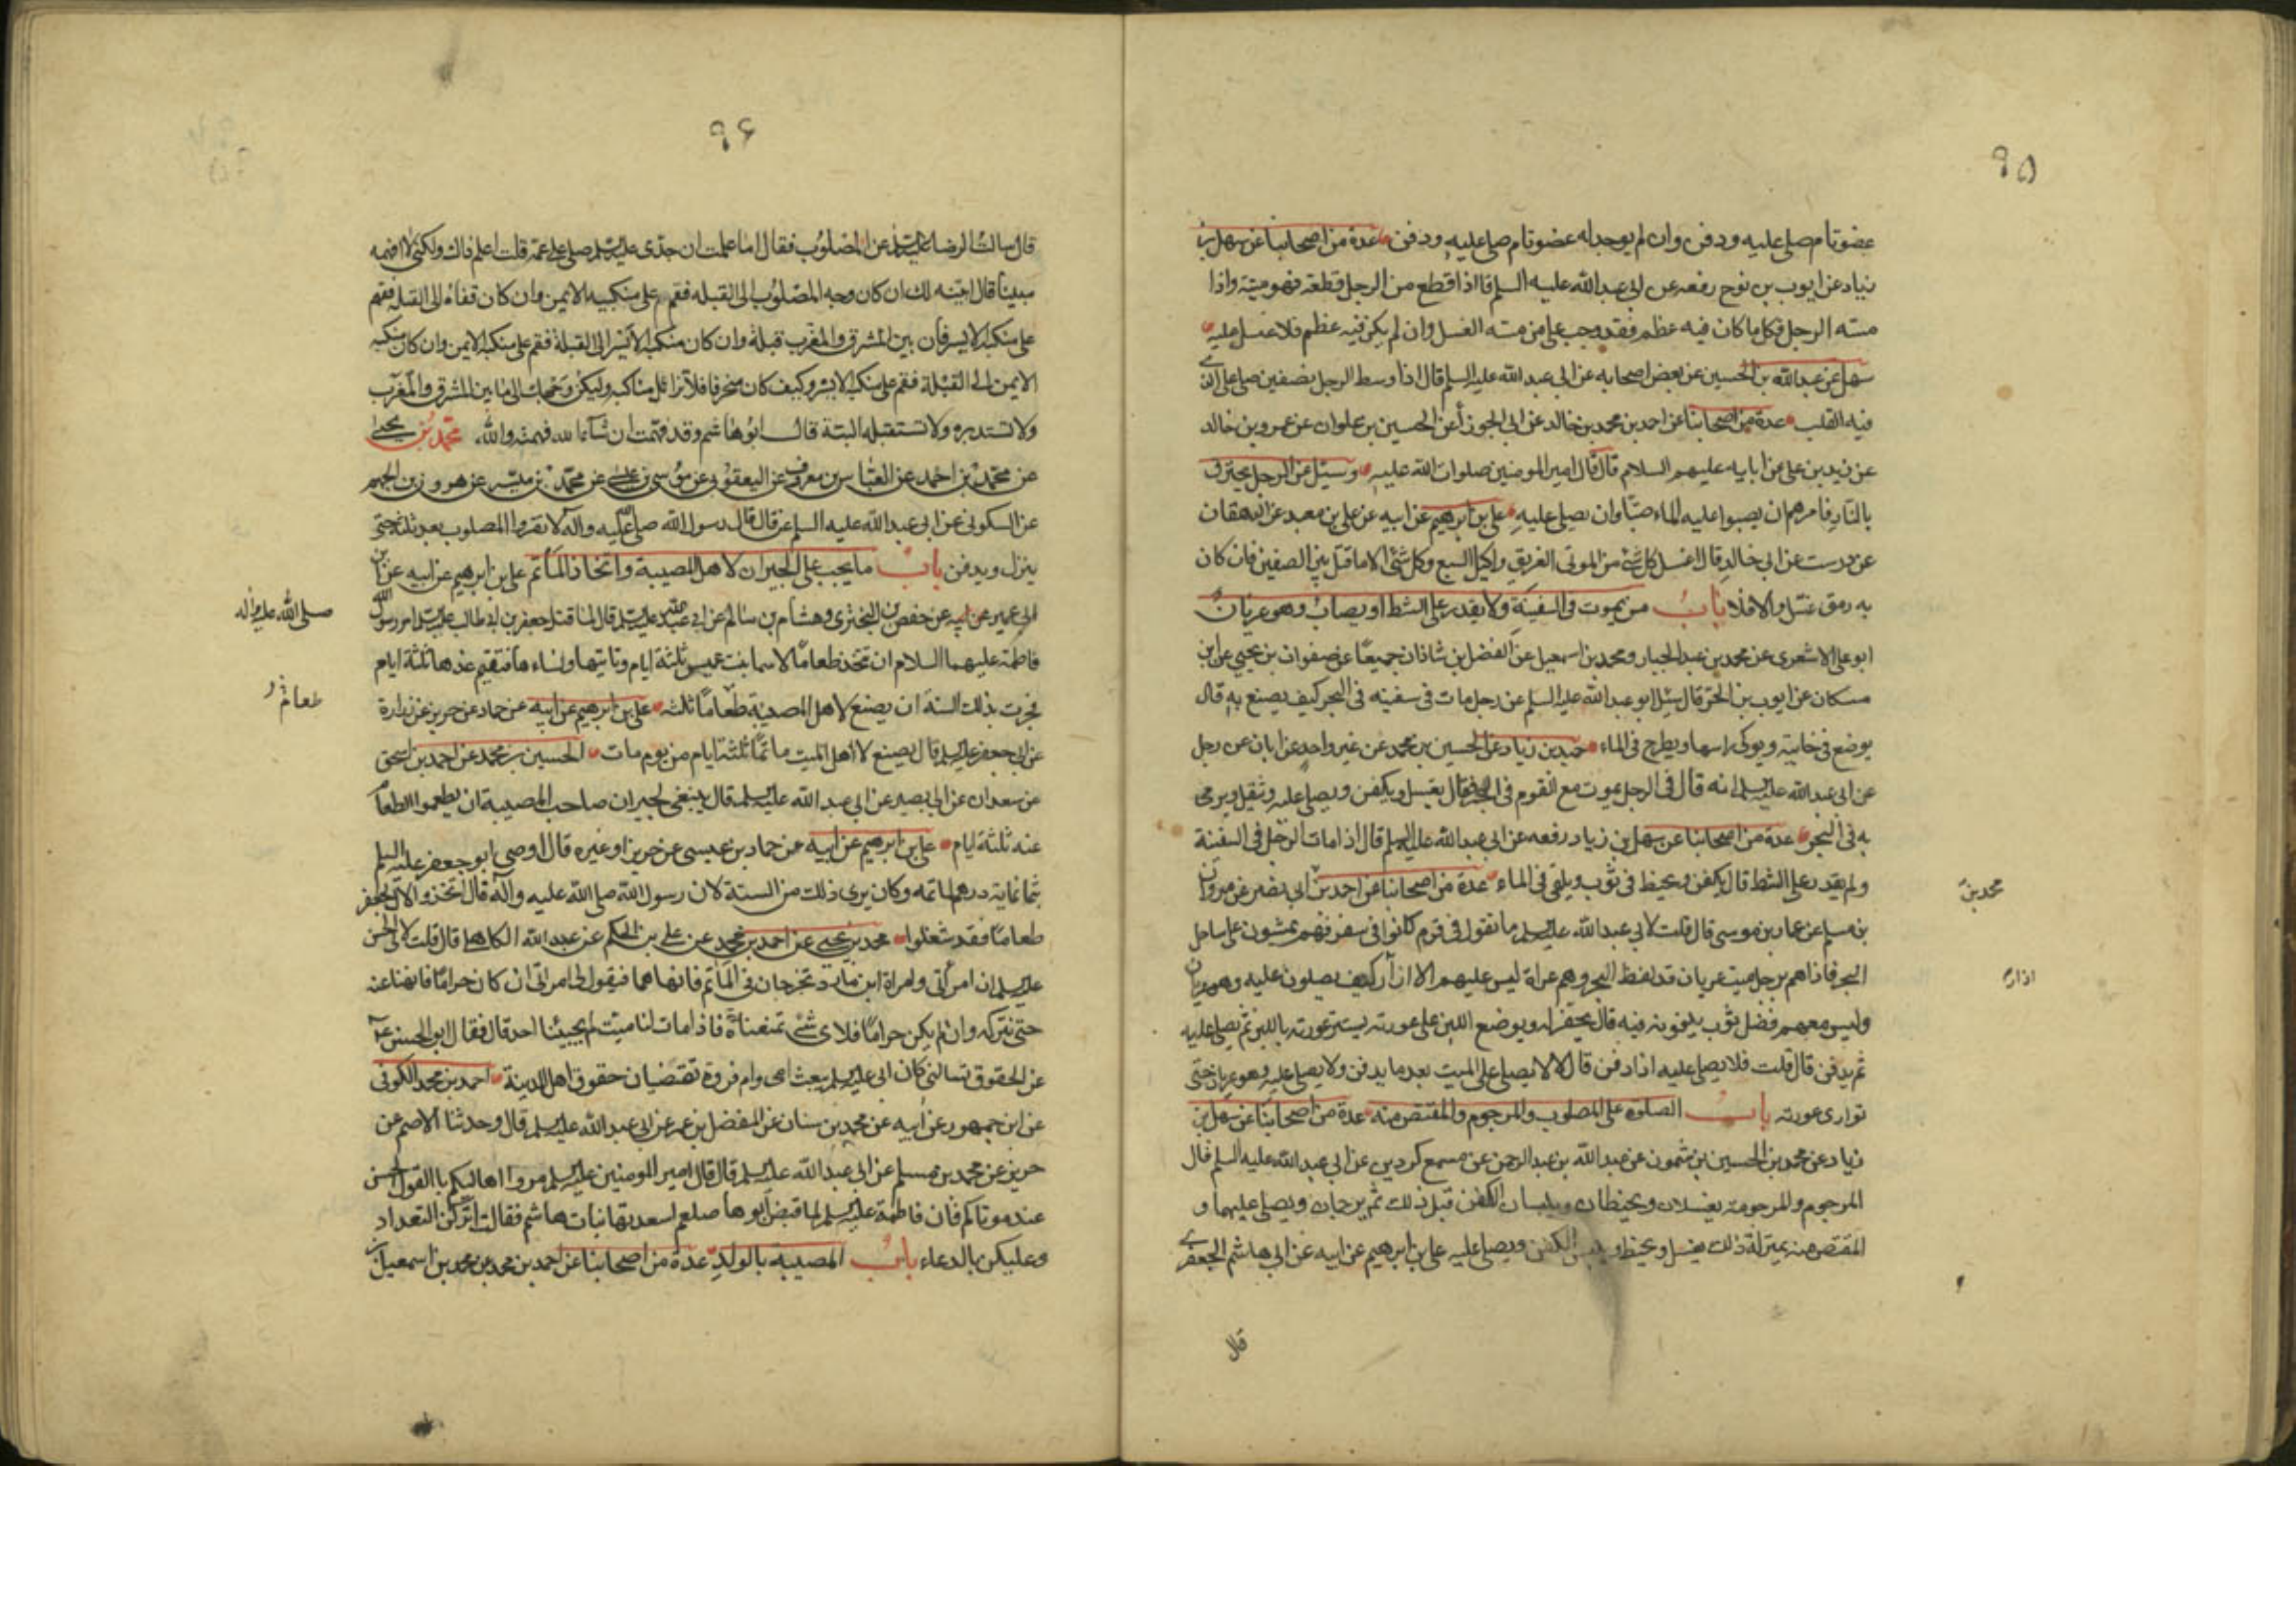 ٩٥
عضو تام صلى عليه ودفن وان لم يوجد له عضو تام صلى عليه ودفن عدة من اصحابنا عن سهل بن
زياد عن ايوب بن نوح رفعه عن ابى عبد الله عليه السلم قال اذا قطع من الرجل قطعة فهو ميتة واذا
مسه الرجل فكل ما كان فيه عظم فقد وجب على من مسه الغسل وان لم يكن فيه عظم فلا غسل عليه
سهل عن عبد الله بن الحسين عن بعض اصحابه عن ابى عبد الله عليه السلم قال اذا وسط الرجل بنصفين صلى على الذى
فيه القلب عدة من اصحابنا عن احمد بن محمد بن خالد عن ابى الجوزاء عن الحسين بن علوان عن عمرو بن خالد
عن زيد بن على عن ابايه عليهم السلام قال قال امير المومنين صلوات الله عليه وسئل عن الرجل يحترق
بالنار فامرهم ان يصبوا عليه الماء صبا وان يصلى عليه على بن ابرهيم عن ابيه عن على بن معبد عن الدهقان
عن درست عن ابى خالد قال اغسل كل شئ من الموتى الغريق واكيل السبع وكل شئ الا ما قتل بين الصفين فان كان
به رمق غسل والا فلا باب من يموت فى السفينة ولا يقدر على الشط او يصاب وهو عريان
ابو على الاشعرى عن محمد بن عبد الجبار ومحمد بن اسمعيل عن الفضل بن شاذان جميعا عن صفوان بن يحيى عن ابن
مسكان عن ايوب بن الحر قال سئل ابو عبد الله عليه السلم عن رجل مات فى سفينه فى البحر كيف يصنع به قال
يوضع فى خابية ويوكى راسها ويطرح فى الماء حميد بن زياد عن الحسين بن محمد عن غير واحد عن ابان عن رجل
عن ابى عبد الله عليه السلم انه قال فى الرجل يموت مع القوم فى البحر فقال يغسل ويكفن ويصلى عليه ويثقل ويرمى
به فى البحر عدة من اصحابنا عن سهل بن زياد رفعه عن ابى عبد الله عليه السلم قال اذا مات الرجل فى السفينة
ولم يقدر على الشط قال يكفن ويحنط فى ثوب ويلقى فى الماء عدة من اصحابنا عن احمد بن ابى نصير عن مروان
محمد بن
بن مسلم عن عمار بن موسى قال قلت لابى عبد الله عليه السلم ما تقول فى قوم كانوا فى سفر فهم يمشون على ساحل
البحر فاذا هم برجل ميت عريان قد لفظ البحر وهم عراة ليس عليهم الا ازار كيف يصلون عليه وهو عريان
ازار
وليس معهم فضل ثوب يلفونه فيه قال يحفر له ويوضع اللبن على عورته يستر عورته باللبن ثم يصلى عليه
ثم يدفن قال قلت فلا يصلى عليه اذا دفن قال لا لا يصلى على الميت بعد ما يدفن ولا يصلى عليه وهو عريان حتى
توارى عورته باب الصلوة على المصلوب والمرجوم والمقتص منه عدة من اصحابنا عن سهل بن
زياد عن محمد بن الحسين بن شمون عن عبد الله بن عبد الرحمن عن مسمع كردين عن ابى عبد الله عليه السلم قال
المرجوم والمرجومة يغسلان ويحنطان ويلبسان الكفن قبل ذلك ثم يرجمان ويصلى عليهما و
المقتص منه بمنزلة ذلك يغسل ويحنط ويلبس الكفن ويصلى عليه على بن ابرهيم عن ابيه عن ابى هاشم الجعفرى
قال
٩۶
قال سالت الرضا عليه السلم عن المصلوب فقال اما علمت ان جدى عليه السلم صلى على عمه قلت اعلم ذاك ولكنى لا افهمه
مبينا قال ابينه لك ان كان وجه المصلوب الى القبله فقم على منكبيه الايمن وان كان قفاه الى القبلة فقم
على منكبه الايسر فان بين المشرق والمغرب قبلة وان كان منكبه الايسر الى القبلة فقم على منكبه الايمن وان كان منكبه
الايمن الى القبلة فقم على منكبه الايسر وكيف كان منحرفا فلا تزايل مناكبه وليكن وجهك الى ما بين المشرق والمغرب
ولا تستدبره ولا تستقبله البتة قال ابو هاشم وقد فهمت ان شآء الله فهمته والله محمد بن يحيى
عن محمد بن احمد عن العباس بن معروف عن اليعقوبى عن موسى بن عيسى عن محمد بن ميسر عن هرون بن الجهم
عن السكونى عن ابى عبد الله عليه السلم قال قال رسول الله صلى الله عليه واله لا تقروا المصلوب بعد ثلثة حتى
ينزل ويدفن باب ما يجب على الجيران لاهل المصيبة واتخاذ الماتم على بن ابرهيم عن ابيه عن ابن
ابى عمير عن حفص بن البخترى وهشام بن سالم عن ابى عبد الله عليه السلم قال لما قتل جعفر بن ابى طالب عليه السلم امر رسول الله
صلى الله عليه واله
فاطمة عليهما السلام ان تتخذ طعاما لاسما بنت عميس ثلثة ايام وتاتيها ونساءها فتقيم عندها ثلثة ايام
فجرت بذلك السنة ان يصنع لاهل المصيبة طعاما ثلثه على بن ابرهيم عن ابيه عن حماد عن حريز عن زرارة
عن ابى جعفر عليه السلم قال يصنع لاهل الميت ماتما ثلثة ايام من يوم مات الحسين بن محمد عن احمد بن اسحق
عن سعدان عن ابى بصير عن ابى عبد الله عليه السلم قال ينبغى لجيران صاحب المصيبة ان يطعموا الطعام
عنه ثلثة ايام على بن ابرهيم عن ابيه عن حماد بن عيسى عن حريز او غيره قال اوصى ابو جعفر عليه السلم
بثمانماية درهم لماتمه وكان يرى ذلك من السنة لان رسول الله صلى الله عليه واله قال اتخذوا لآل جعفر
طعاما فقد شغلوا محمد بن يحيى عن احمد بن محمد عن على بن الحكم عن عبد الله الكاهلى قال قلت لابى الحسن
عليه السلم ان امراتى وامراة ابن مارد تخرجان فى الماتم فانهاهما فيقول لى امراتى ان كان حراما فانهنا عنه
حتى نتركه وان لم يكن حراما فلاى شئ تمنعناه فاذا مات لنا ميت لم يجيئنا احد قال فقال ابو الحسن
عن الحقوق تسالنى كان ابى عليه السلم يبعث امى وام فروة تقضيان حقوق اهل المدينة احمد بن محمد الكوفى
عن ابن جمهور عن ابيه عن محمد بن سنان عن المفضل بن عمر عن ابى عبد الله عليه السلم قال وحدثنا الاصم عن
حريز عن محمد بن مسلم عن ابى عبد الله عليه السلم قال قال امير المومنين عليه السلم مروا اهاليكم بالقول الحسن
عند موتاكم فان فاطمة عليها السلم لما قبض ابوها صلعم اسعدتها بنات هاشم فقالت اتركن التعداد
وعليكن بالدعاء باب المصيبة بالولد عدة من اصحابنا عن احمد بن محمد عن محمد بن اسمعيل